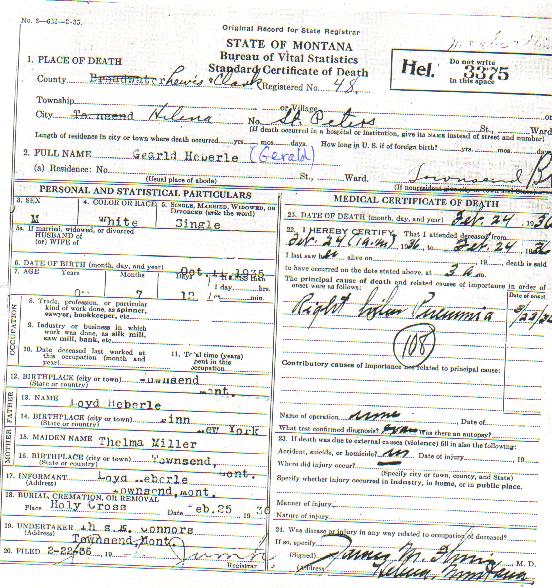 No. S—631—2-35.
Original Record for State Registrar
STATE OF MONTANA
Bureau of Vital Statistics
Standard Certificate of Death
Hel. Do not write in this space 3375
1. PLACE OF DEATH
County Broadwater Lewis & Clark (Registered No. 48
Township or Village
City Townsend Helena No. St Peters St., Ward
(If death occurred in a hospital or institution, give its NAME instead of street and number)
Length of residence in city or town where death occurred yrs. mos. days. How long in U. S. if of foreign birth? yrs. mos. days.
2. FULL NAME Gearld Heberle (Gerald)
(a) Residence: No. St., Ward. Townsend
(Usual place of abode) (If nonresident
PERSONAL AND STATISTICAL PARTICULARS
3. SEX M
4. COLOR OR RACE White
5. SINGLE, MARRIED, WIDOWED, OR DIVORCED (write the word) Single
5a. If married, widowed, or divorced
HUSBAND OF
(or) WIFE of
6. DATE OF BIRTH (month, day, and year) Oct. 1935
7. AGE Years Months Days
12 1 day, hrs.
or min.
OCCUPATION
8. Trade, profession, or particular kind of work done, as spinner, sawyer, bookkeeper, etc.
9. Industry or business in which work was done, as silk mill, saw mill, bank, etc.
10. Date deceased last worked at this occupation (month and year)
11. Total time (years) spent in this occupation.
12. BIRTHPLACE (city or town) Townsend
(State or country) Mont.
FATHER
13. NAME Loyd Heberle
14. BIRTHPLACE (city or town)
(State or country) New York
MOTHER
15. MAIDEN NAME Thelma Miller
16. BIRTHPLACE (city or town) Townsend,
(State or country) Mont.
17. INFORMANT Loyd Heberle
(Address) Townsend, Mont.
18. BURIAL, CREMATION, OR REMOVAL
Place Holy Cross Date Feb. 25 1936
19. UNDERTAKER Connors
(Address) Townsend, Mont
20. FILED 2-22-36, 19
Registrar
MEDICAL CERTIFICATE OF DEATH
21. DATE OF DEATH (month, day, and year) Feb. 24 1936
22. I HEREBY CERTIFY That I attended deceased from
Fev. 24 (1 a.m) 1936, to Feb. 24 1936
I last saw h alive on 19 death is said
to have occurred on the date stated above, at 3 a m.
The principal cause of death and related cause of importance in order of onset were as follows:
Date of onset
Right Pneumonia
108
Contributory causes of importance not related to principal cause:
Name of operation none Date of
What test confirmed diagnosis? Was there an autopsy?
23. If death was due to external causes (violence) fill in also the following:
Accident, suicide, or homicide? Date of injury 19
Where did injury occur?
(Specify city or town, county, and State)
Specify whether injury occurred in industry, in home, or in public place.
Manner of injury
Nature of injury
24. Was disease or injury in any way related to occupation of deceased?
If so, specify
(Signed) M. D.
(Address)